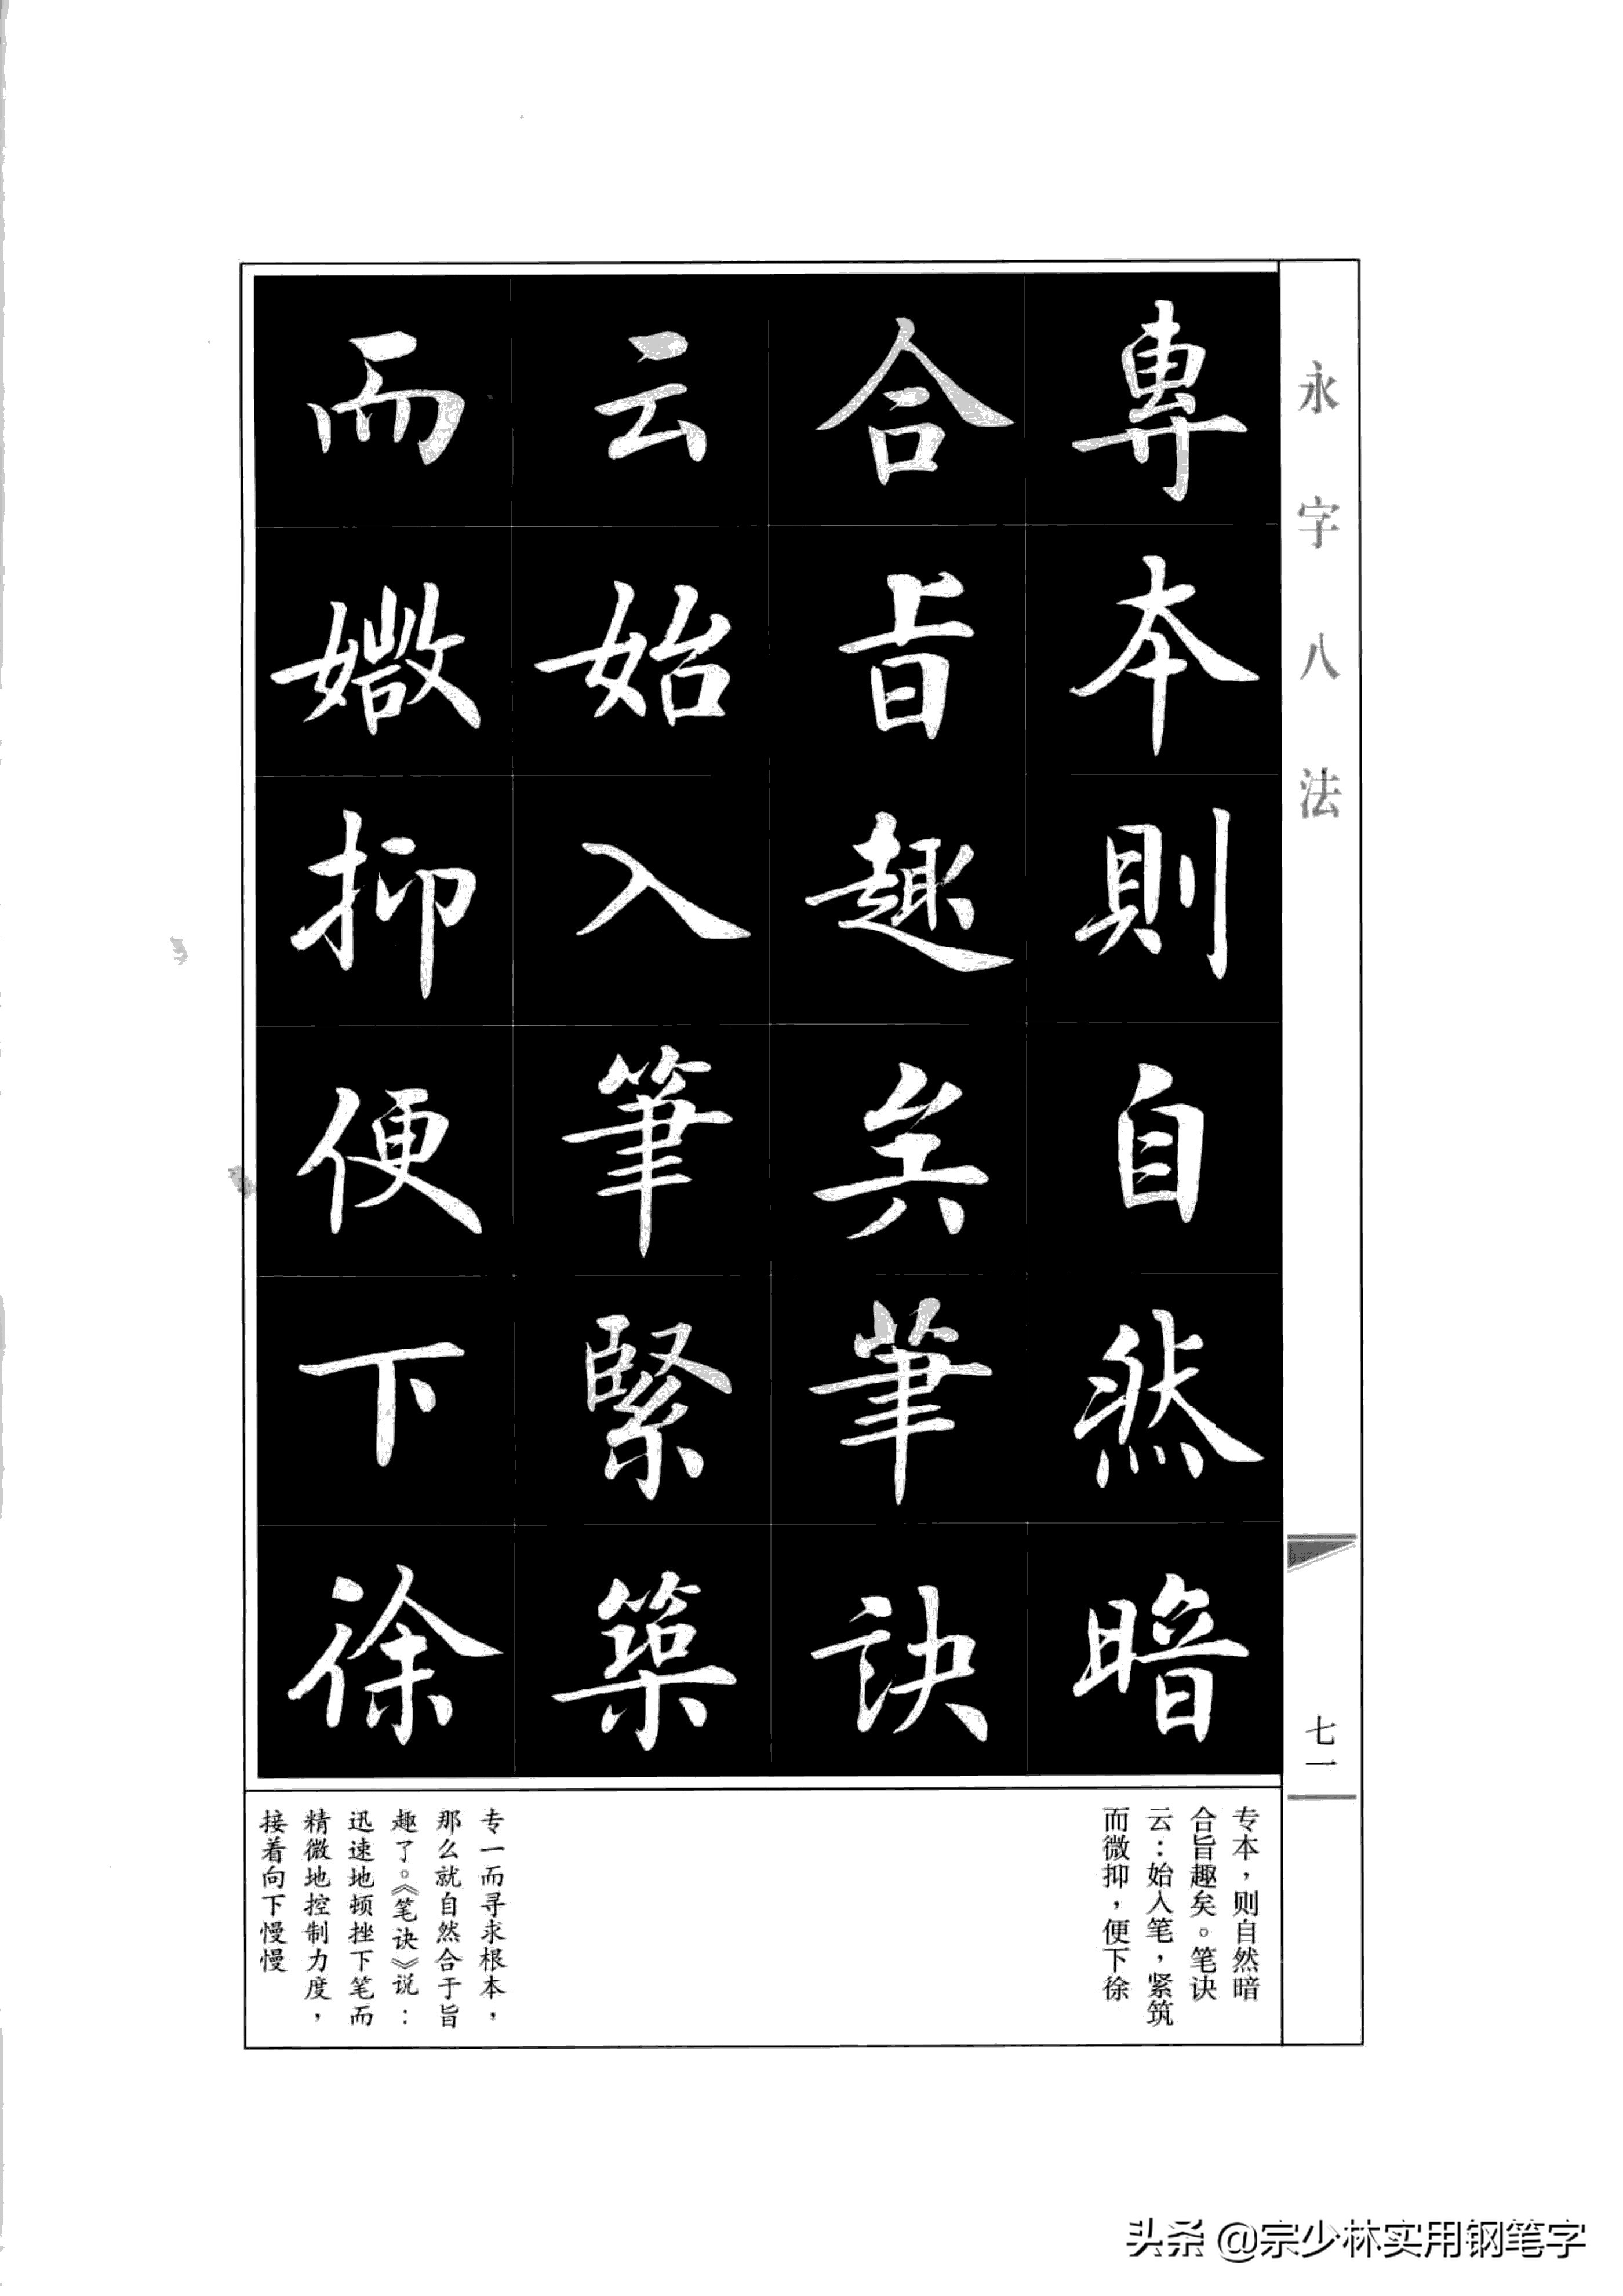 永字八法
專本則自然暗
合旨趣矣筆訣
云始入筆緊築
而媺抑便下徐
七一
专本，则自然暗
合旨趣矣。笔诀
云：始入笔，紧筑
而微抑，便下徐
专一而寻求根本，
那么就自然合于旨
趣了。《笔诀》说：
迅速地顿挫下笔而
精微地控制力度，
接着向下慢慢
头条 @宗少林实用钢笔字